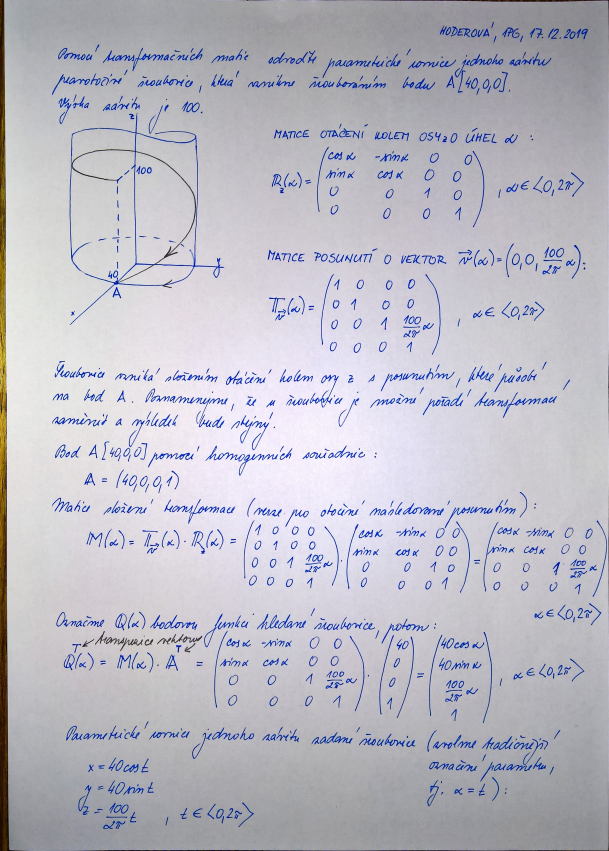 HODEROVÁ, 1PG, 17.12.2019
Pomocí transformačních matic odvoďte parametrické rovnice jednoho závitu
pravotočivé šroubovice, která vznikne šroubováním bodu A[40,0,0].
Výška závitu je 100.
z
100
40
A
x
y
MATICE OTÁČENÍ KOLEM OSY z O ÚHEL α :
R_z(α) = ( cos α -sin α 0 0
sin α cos α 0 0
0 0 1 0
0 0 0 1 ) , α ∈ <0,2π>
MATICE POSUNUTÍ O VEKTOR v(α) = (0, 0, 100/2π α) :
T_v(α) = ( 1 0 0 0
0 1 0 0
0 0 1 100/2π α
0 0 0 1 ) , α ∈ <0,2π>
Šroubovice vzniká složením otáčení kolem osy z s posunutím, které působí
na bod A. Poznamenejme, že u šroubovice je možné pořadí transformací
zaměnit a výsledek bude stejný.
Bod A[40,0,0] pomocí homogenních souřadnic :
A = (40,0,0,1)
Matice složené transformace (verze pro otočení následované posunutím) :
M(α) = T_v(α) · R_z(α) = ( 1 0 0 0
0 1 0 0
0 0 1 100/2π α
0 0 0 1 ) · ( cos α -sin α 0 0
sin α cos α 0 0
0 0 1 0
0 0 0 1 ) = ( cos α -sin α 0 0
sin α cos α 0 0
0 0 1 100/2π α
0 0 0 1 )
α ∈ <0,2π>
Označme Q(α) bodovou funkci hledané šroubovice, potom :
transpozice vektoru
Q^T(α) = M(α) · A^T = ( cos α -sin α 0 0
sin α cos α 0 0
0 0 1 100/2π α
0 0 0 1 ) · ( 40
0
0
1 ) = ( 40 cos α
40 sin α
100/2π α
1 ) , α ∈ <0,2π>
Parametrické rovnice jednoho závitu zadané šroubovice (zvolme tradičnější
označení parametru,
tj. α = t ) :
x = 40 cos t
y = 40 sin t
z = 100/2π t , t ∈ <0,2π>